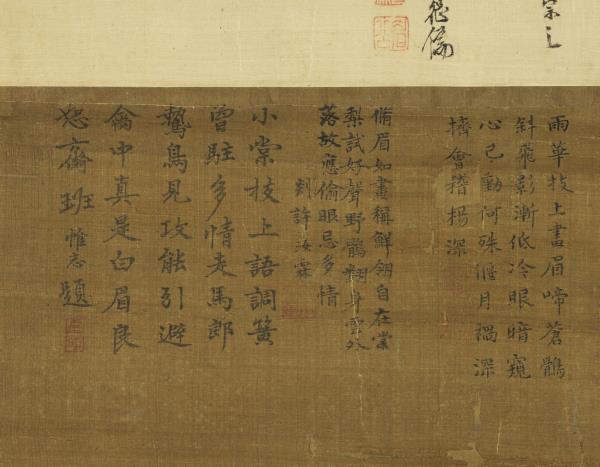 宗之
倫
雨華枝上畫眉啼蒼鶻
斜飛影漸低冷眼暗窺
心已動何殊偃月禍深
擠會稽楊深
脩眉如畫稱鮮翎自在棠
梨試好聲野鶻翻身雲外
落故應偷眼忌多情
剡許汝霖
小棠枝上語調簧
曾駐多情走馬郎
鷙鳥見攻能引避
禽中真是白眉良
恕齋班惟志題